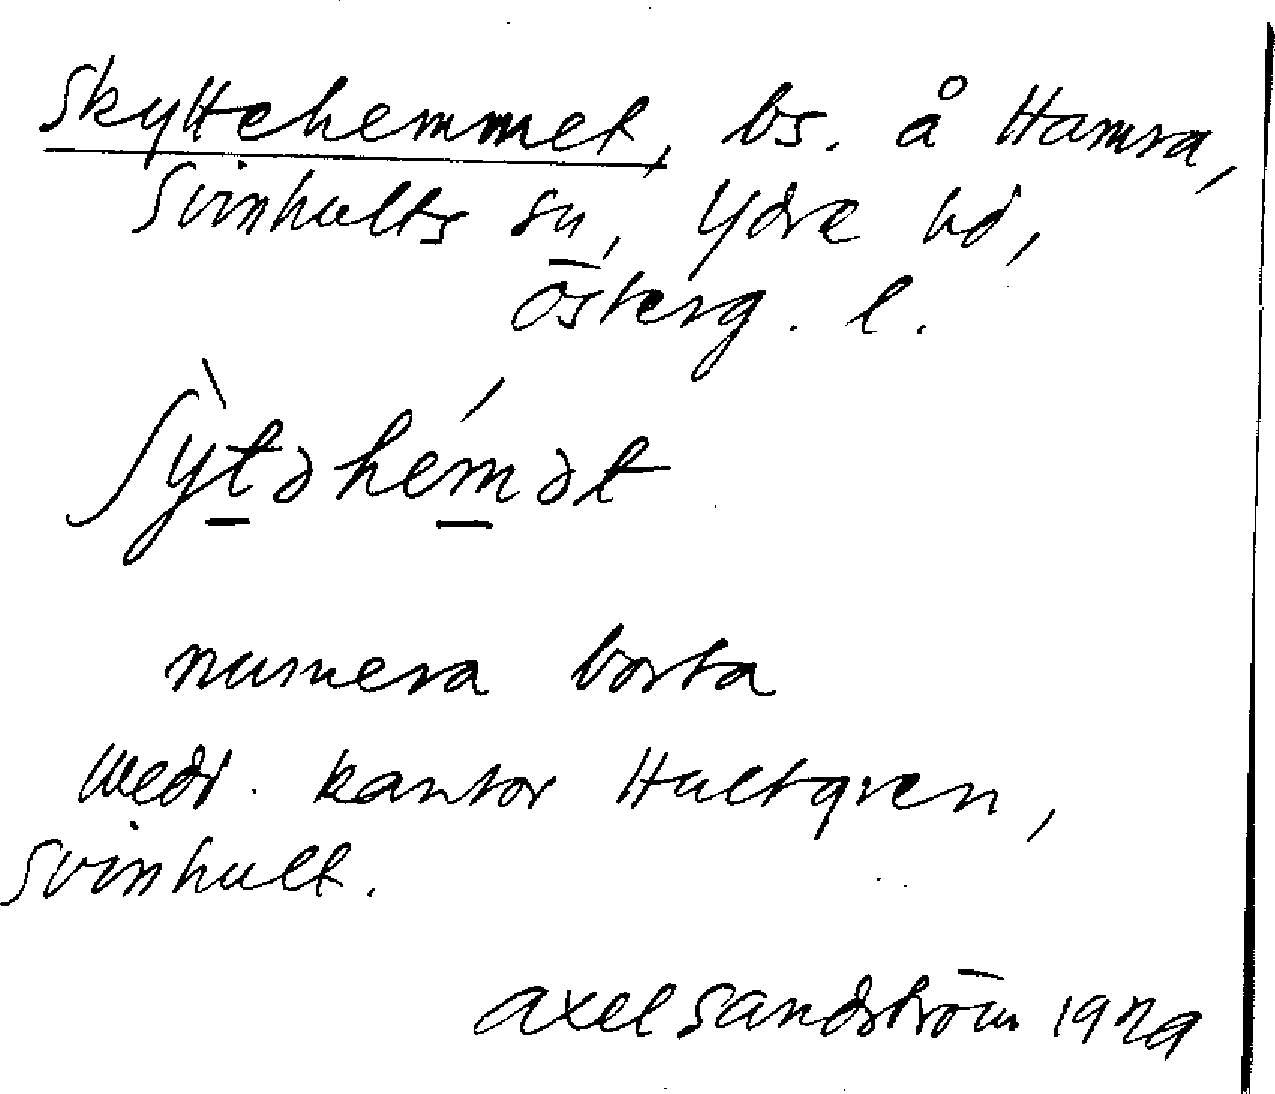 Skyttehemmet, bs. å Hamra,
Svinhults sn, Ydre hd,
Österg. l.
ʃỳtəhémət
numera borta
Medd. kantor Hultgren,
Svinhult.
Axel Sandström 1929